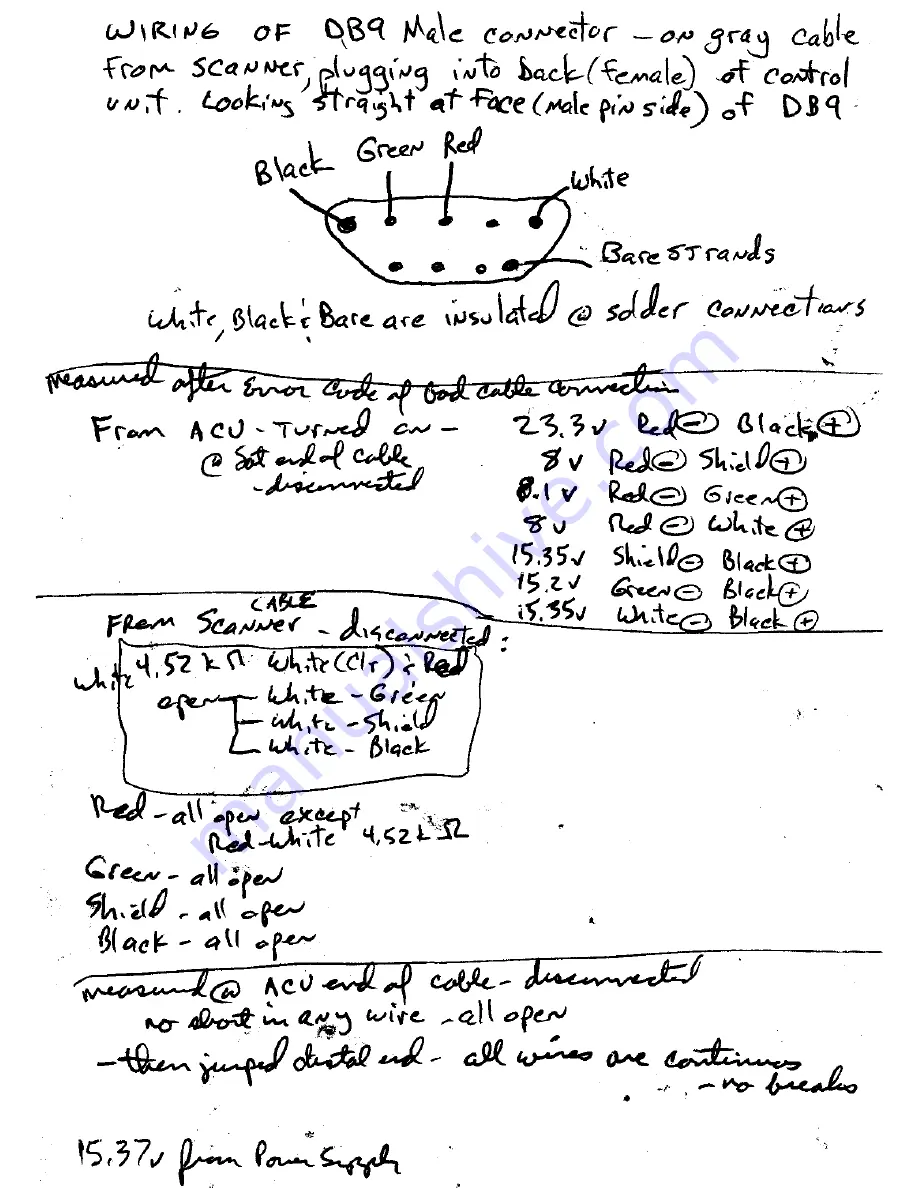 WIRING OF DB9 Male connector - on gray cable
from scanner, plugging into back (female) of control
unit. Looking straight at face (male pin side) of DB9
Black Green Red
White
Bare strands
White, Black & Bare are insulated @ solder connections
measured after Error Code of bad cable connection
From ACU - Turned on - 23.3v Red ⊖ Black ⊕
@ Sat end of cable 8v Red ⊖ Shield ⊕
- disconnected 8.1v Red ⊖ Green ⊕
8v Red ⊖ White ⊕
15.35v Shield ⊖ Black ⊕
15.2v Green ⊖ Black ⊕
15.35v White ⊖ Black ⊕
CABLE
From Scanner - disconnected:
White 4.52 k Ω White (Clr) & Red
open White - Green
- White - Shield
White - Black
Red - all open except
Red-White 4.52 k Ω
Green - all open
Shield - all open
Black - all open
measured @ ACU end of cable - disconnected
no short in any wire - all open
- then jumped distal end - all wires are continuos
- no breaks
15.37v from Power Supply
manualshive.com